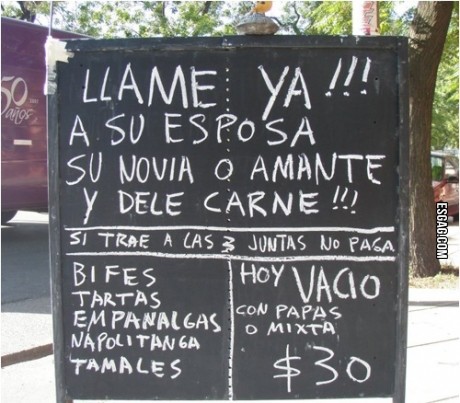 LLAME YA!!!
A SU ESPOSA
SU NOVIA O AMANTE
Y DELE CARNE!!!
SI TRAE A LAS 3 JUNTAS NO PAGA
BIFES
TARTAS
EMPANALGAS
NAPOLITANGA
TAMALES
HOY VACIO
CON PAPAS
O MIXTA
$30
50
años
ESGAG.COM